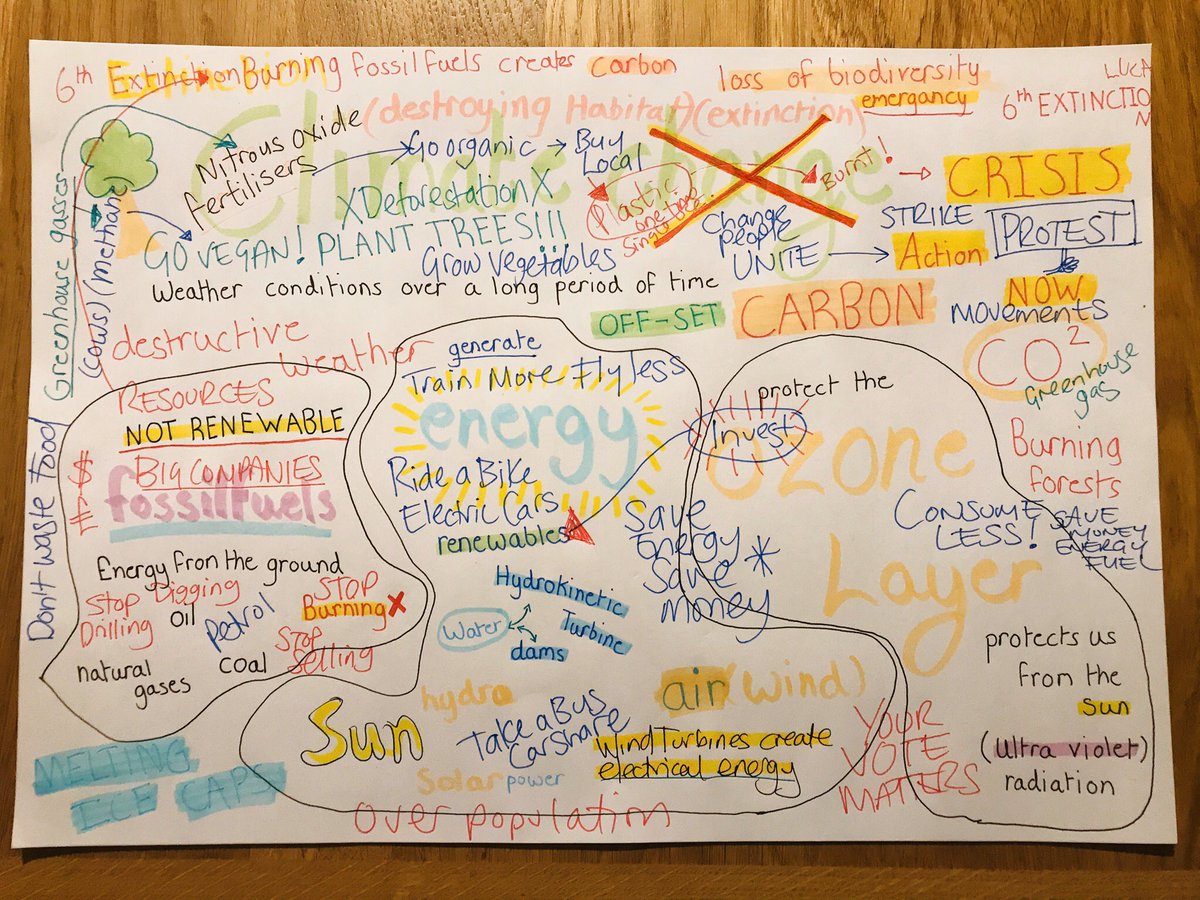 6th Extinction Burning Fossil Fuels creates Carbon
loss of biodiversity
emergancy
LUCA
6th EXTINCTIO
N
(destroying Habitat) (extinction)
Climate change
Nitrous oxide
fertilisers
Go organic
Buy
Local
Plastic
one time
single
Burnt!
CRISIS
X Deforestation X
GO VEGAN! PLANT TREES!!!
Grow vegetables
Change
people
UNITE
STRIKE
Action
PROTEST
NOW
movements
Greenhouse gasses
(cows) (methane)
Weather conditions over a long period of time
OFF-SET
CARBON
CO2
Greenhouse
gas
destructive
weather
Don't waste food
RESOURCES
NOT RENEWABLE
$
£
BIG COMPANIES
fossil fuels
Energy from the ground
Stop
Drilling
Digging
oil
petrol
STOP
Burning X
natural
gases
coal
STOP
Selling
generate
Train More Fly less
energy
Ride a Bike
Electric Cars
renewables
Invest
Save
Energy
Save
money
Hydrokinetic
Turbine
Water
dams
protect the
Ozone
Layer
Burning
forests
CONSUME
LESS!
SAVE
MONEY
ENERGY
FUEL
protects us
from the
sun
(Ultra violet)
radiation
hydro
air (wind)
Sun
Take a Bus
Car Share
Wind Turbines create
electrical energy
Solar power
YOUR
VOTE
MATTERS
MELTING
ICE CAPS
Over population